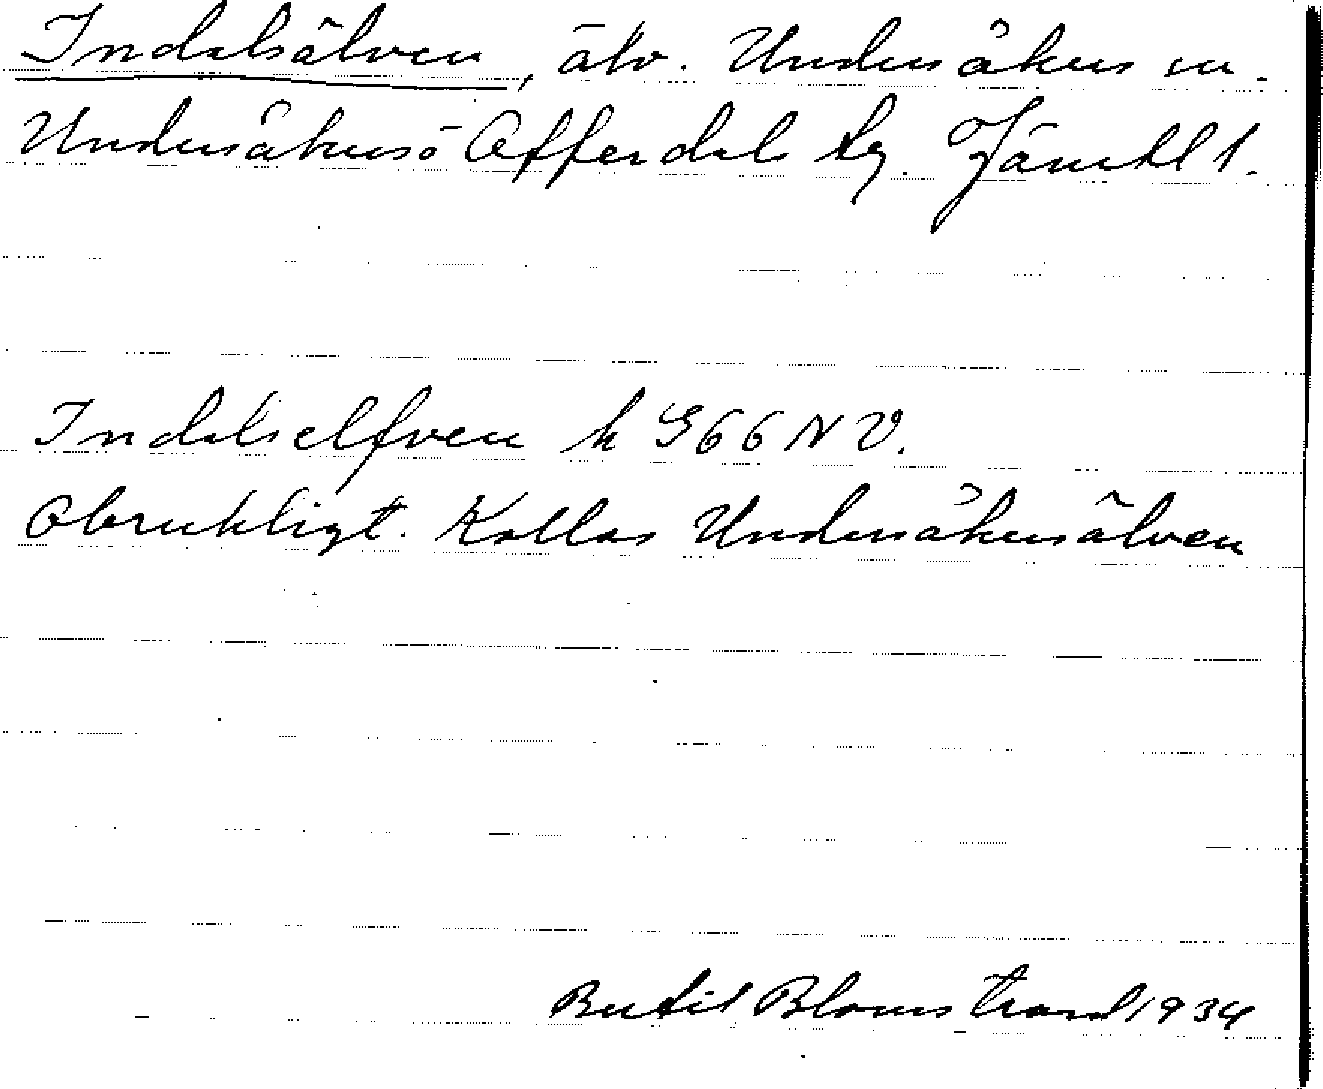 Indalsälven, älv. Undersåkers sn.
Undersåkers o Offerdals tg. Jämtl l.
Indalselfven k G66NV.
Obrukligt. Kallas Undersåkersälven
Bertil Blomstrand 1934